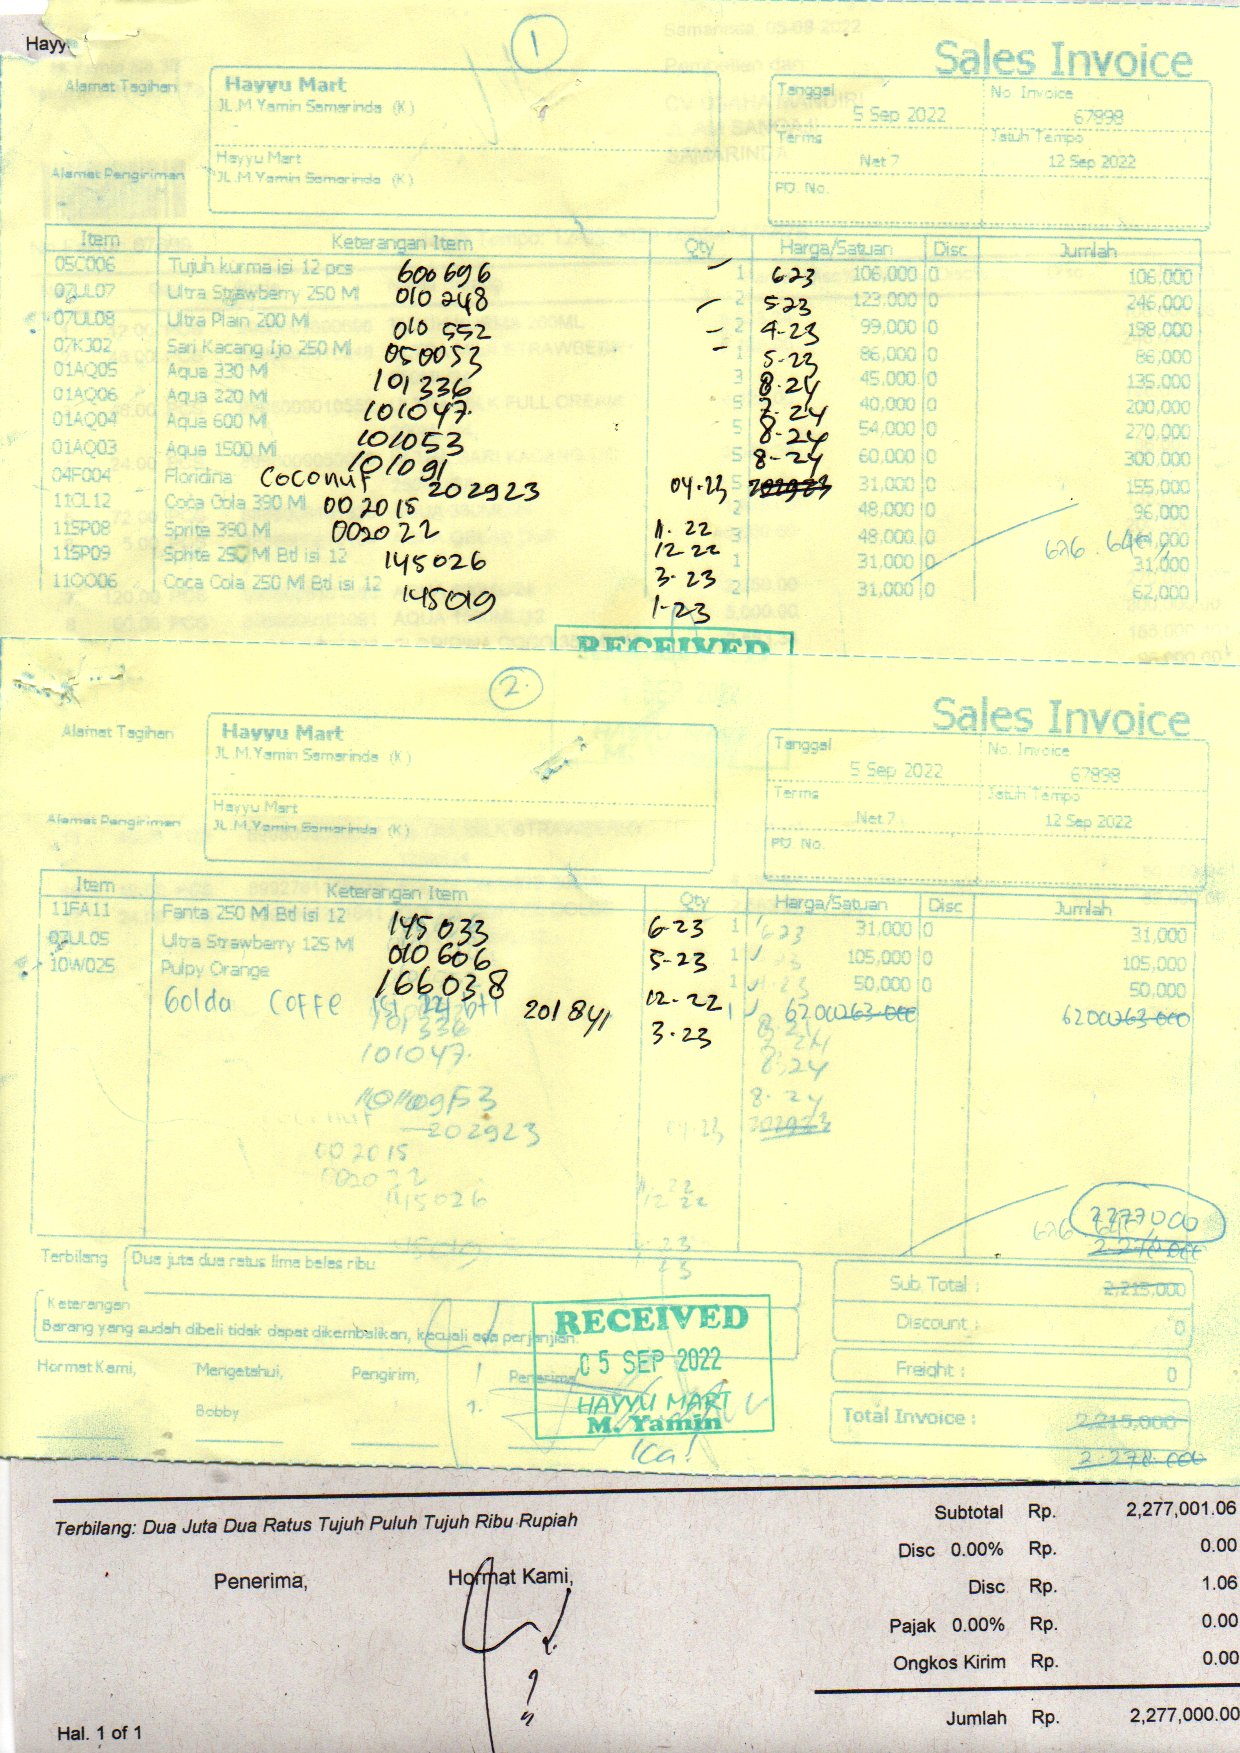 Hayy
1
Sales Invoice
Alamat Tagihan
Hayyu Mart
JL.M Yamin Samarinda (K)
Tanggal
5 Sep 2022
No. Invoice
67898
Terms
Net 7
Jatuh Tempo
12 Sep 2022
Alamat Pengiriman
Hayyu Mart
JL.M.Yamin Samarinda (K)
PO. No.
Item Keterangan Item Qty Harga/Satuan Disc Jumlah
05C006 Tujuh kurma isi 12 pcs 600696 1 6.23 106,000 0 106,000
07UL07 Ultra Strawberry 250 Ml 010248 2 5.23 123,000 0 246,000
07UL08 Ultra Plain 200 Ml 010552 2 4.23 99,000 0 198,000
07KJ02 Sari Kacang Ijo 250 Ml 050053 1 5.23 86,000 0 86,000
01AQ05 Aqua 330 Ml 101336 3 8.24 45,000 0 135,000
01AQ06 Aqua 220 Ml 101047 5 7.24 40,000 0 200,000
01AQ04 Aqua 600 Ml 101053 5 8.24 54,000 0 270,000
01AQ03 Aqua 1500 Ml 101091 5 8.24 60,000 0 300,000
04F004 Floridina Coconut 202923 04.23 5 202923 31,000 0 155,000
11CL12 Coca Cola 390 Ml 002015 11.22 2 48,000 0 96,000
11SP08 Sprite 390 Ml 002022 12 22 3 48,000 0
11SP09 Sprite 250 Ml Btl isi 12 145026 3.23 1 31,000 0 31,000
11OO06 Coca Cola 250 Ml Btl isi 12 145019 1-23 2 31,000 0 62,000
RECEIVED
2.
Sales Invoice
Alamat Tagihan
Hayyu Mart
JL.M.Yamin Samarinda (K)
Tanggal
5 Sep 2022
No. Invoice
67898
Terms
Net 7
Jatuh Tempo
12 Sep 2022
Alamat Pengiriman
Hayyu Mart
JL.M.Yamin Samarinda (K)
PO. No.
Item Keterangan Item Qty Harga/Satuan Disc Jumlah
11FA11 Fanta 250 Ml Btl isi 12 145033 6.23 1 31,000 0 31,000
07UL05 Ultra Strawberry 125 Ml 010606 5.23 1 105,000 0 105,000
10W025 Pulpy Orange 166038 12.22 1 50,000 0 50,000
Golda Coffe isi 24 btl 201841 3.23 1 62000 63.000 62000 63.000
2277000
2.278.000
Terbilang Dua juta dua ratus lima belas ribu
Sub Total : 2,215,000
Keterangan
Barang yang sudah dibeli tidak dapat dikembalikan, kecuali ada perjanjian.
Discount : 0
Freight : 0
Hormat Kami, Mengetahui, Pengirim, Penerima
Bobby
RECEIVED
05 SEP 2022
HAYYU MART
M. Yamin
Ica!
Total Invoice : 2,215,000
2.278.000
Terbilang: Dua Juta Dua Ratus Tujuh Puluh Tujuh Ribu Rupiah
Subtotal Rp. 2,277,001.06
Disc 0.00% Rp. 0.00
Penerima, Hormat Kami,
Disc Rp. 1.06
Pajak 0.00% Rp. 0.00
Ongkos Kirim Rp. 0.00
Jumlah Rp. 2,277,000.00
Hal. 1 of 1